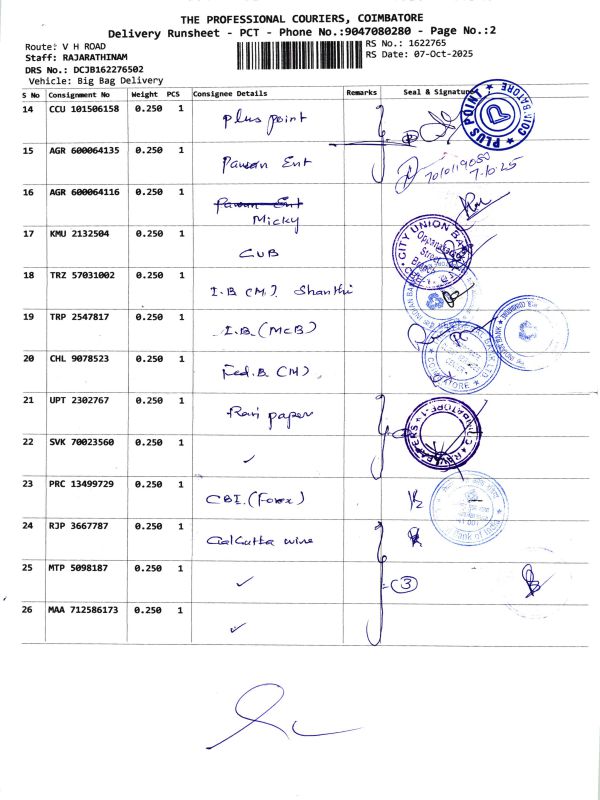 THE PROFESSIONAL COURIERS, COIMBATORE
Delivery Runsheet - PCT - Phone No.:9047080280 - Page No.:2
Route: V H ROAD
RS No.: 1622765
Staff: RAJARATHINAM
RS Date: 07-Oct-2025
DRS No.: DCJB162276502
Vehicle: Big Bag Delivery
S No Consignment No Weight PCS Consignee Details Remarks Seal & Signature
14 CCU 101506158 0.250 1 plus point
PLUS POINT COIMBATORE
15 AGR 600064135 0.250 1 Pawan Ent
7010119050
7-10-25
16 AGR 600064116 0.250 1 Pawan Ent
Micky
17 KMU 2132504 0.250 1 CUB
CITY UNION BANK
Oppanakara
Street
Branch
18 TRZ 57031002 0.250 1 I.B (M). Shanthi
INDIAN BANK
19 TRP 2547817 0.250 1 I.B. (McB)
INDIAN BANK
20 CHL 9078523 0.250 1 Fed.B (M)
COIMBATORE
21 UPT 2302767 0.250 1 Ravi paper
22 SVK 70023560 0.250 1 ✓
23 PRC 13499729 0.250 1 CBI. (Forex)
Bank of India
24 RJP 3667787 0.250 1 Calcutta wire
25 MTP 5098187 0.250 1 ✓ = 3
26 MAA 712586173 0.250 1 ✓